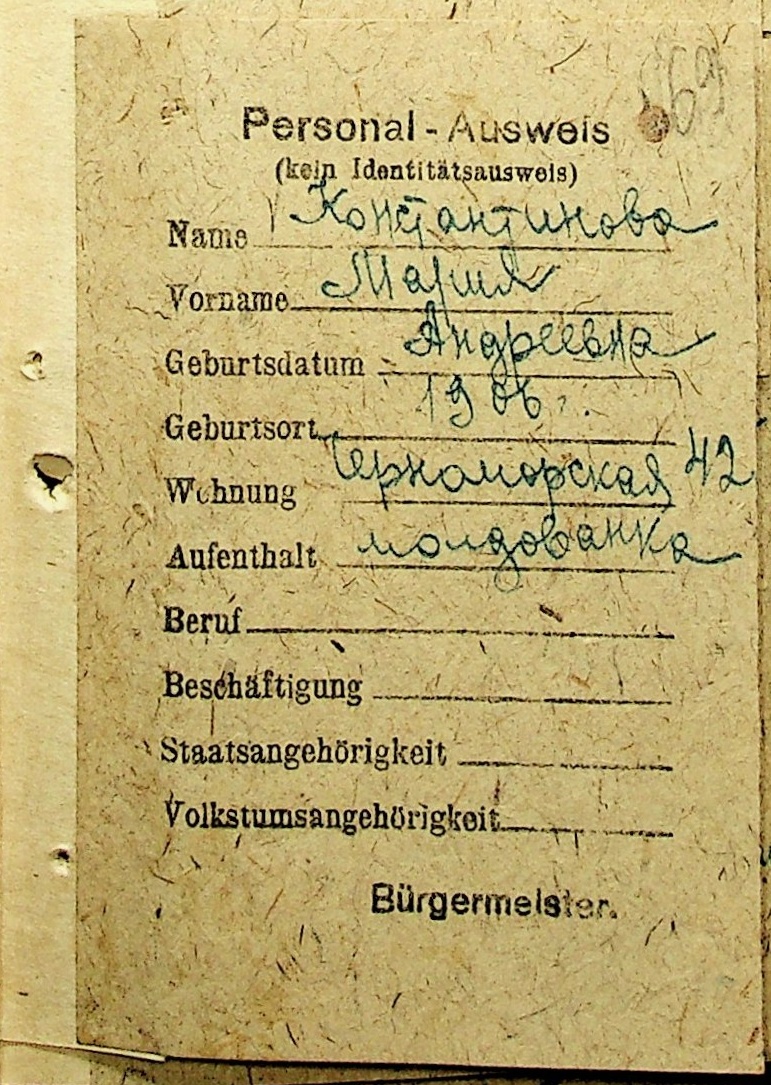 Personal - Ausweis
(kein Identitätsausweis)
Name Константинова
Vorname Мария
Geburtsdatum Андреевна
Geburtsort 1906
Wohnung Черноморская 42
Aufenthalt молдованка
Beruf
Beschäftigung
Staatsangehörigkeit
Volkstumsangehörigkeit
Bürgermeister.